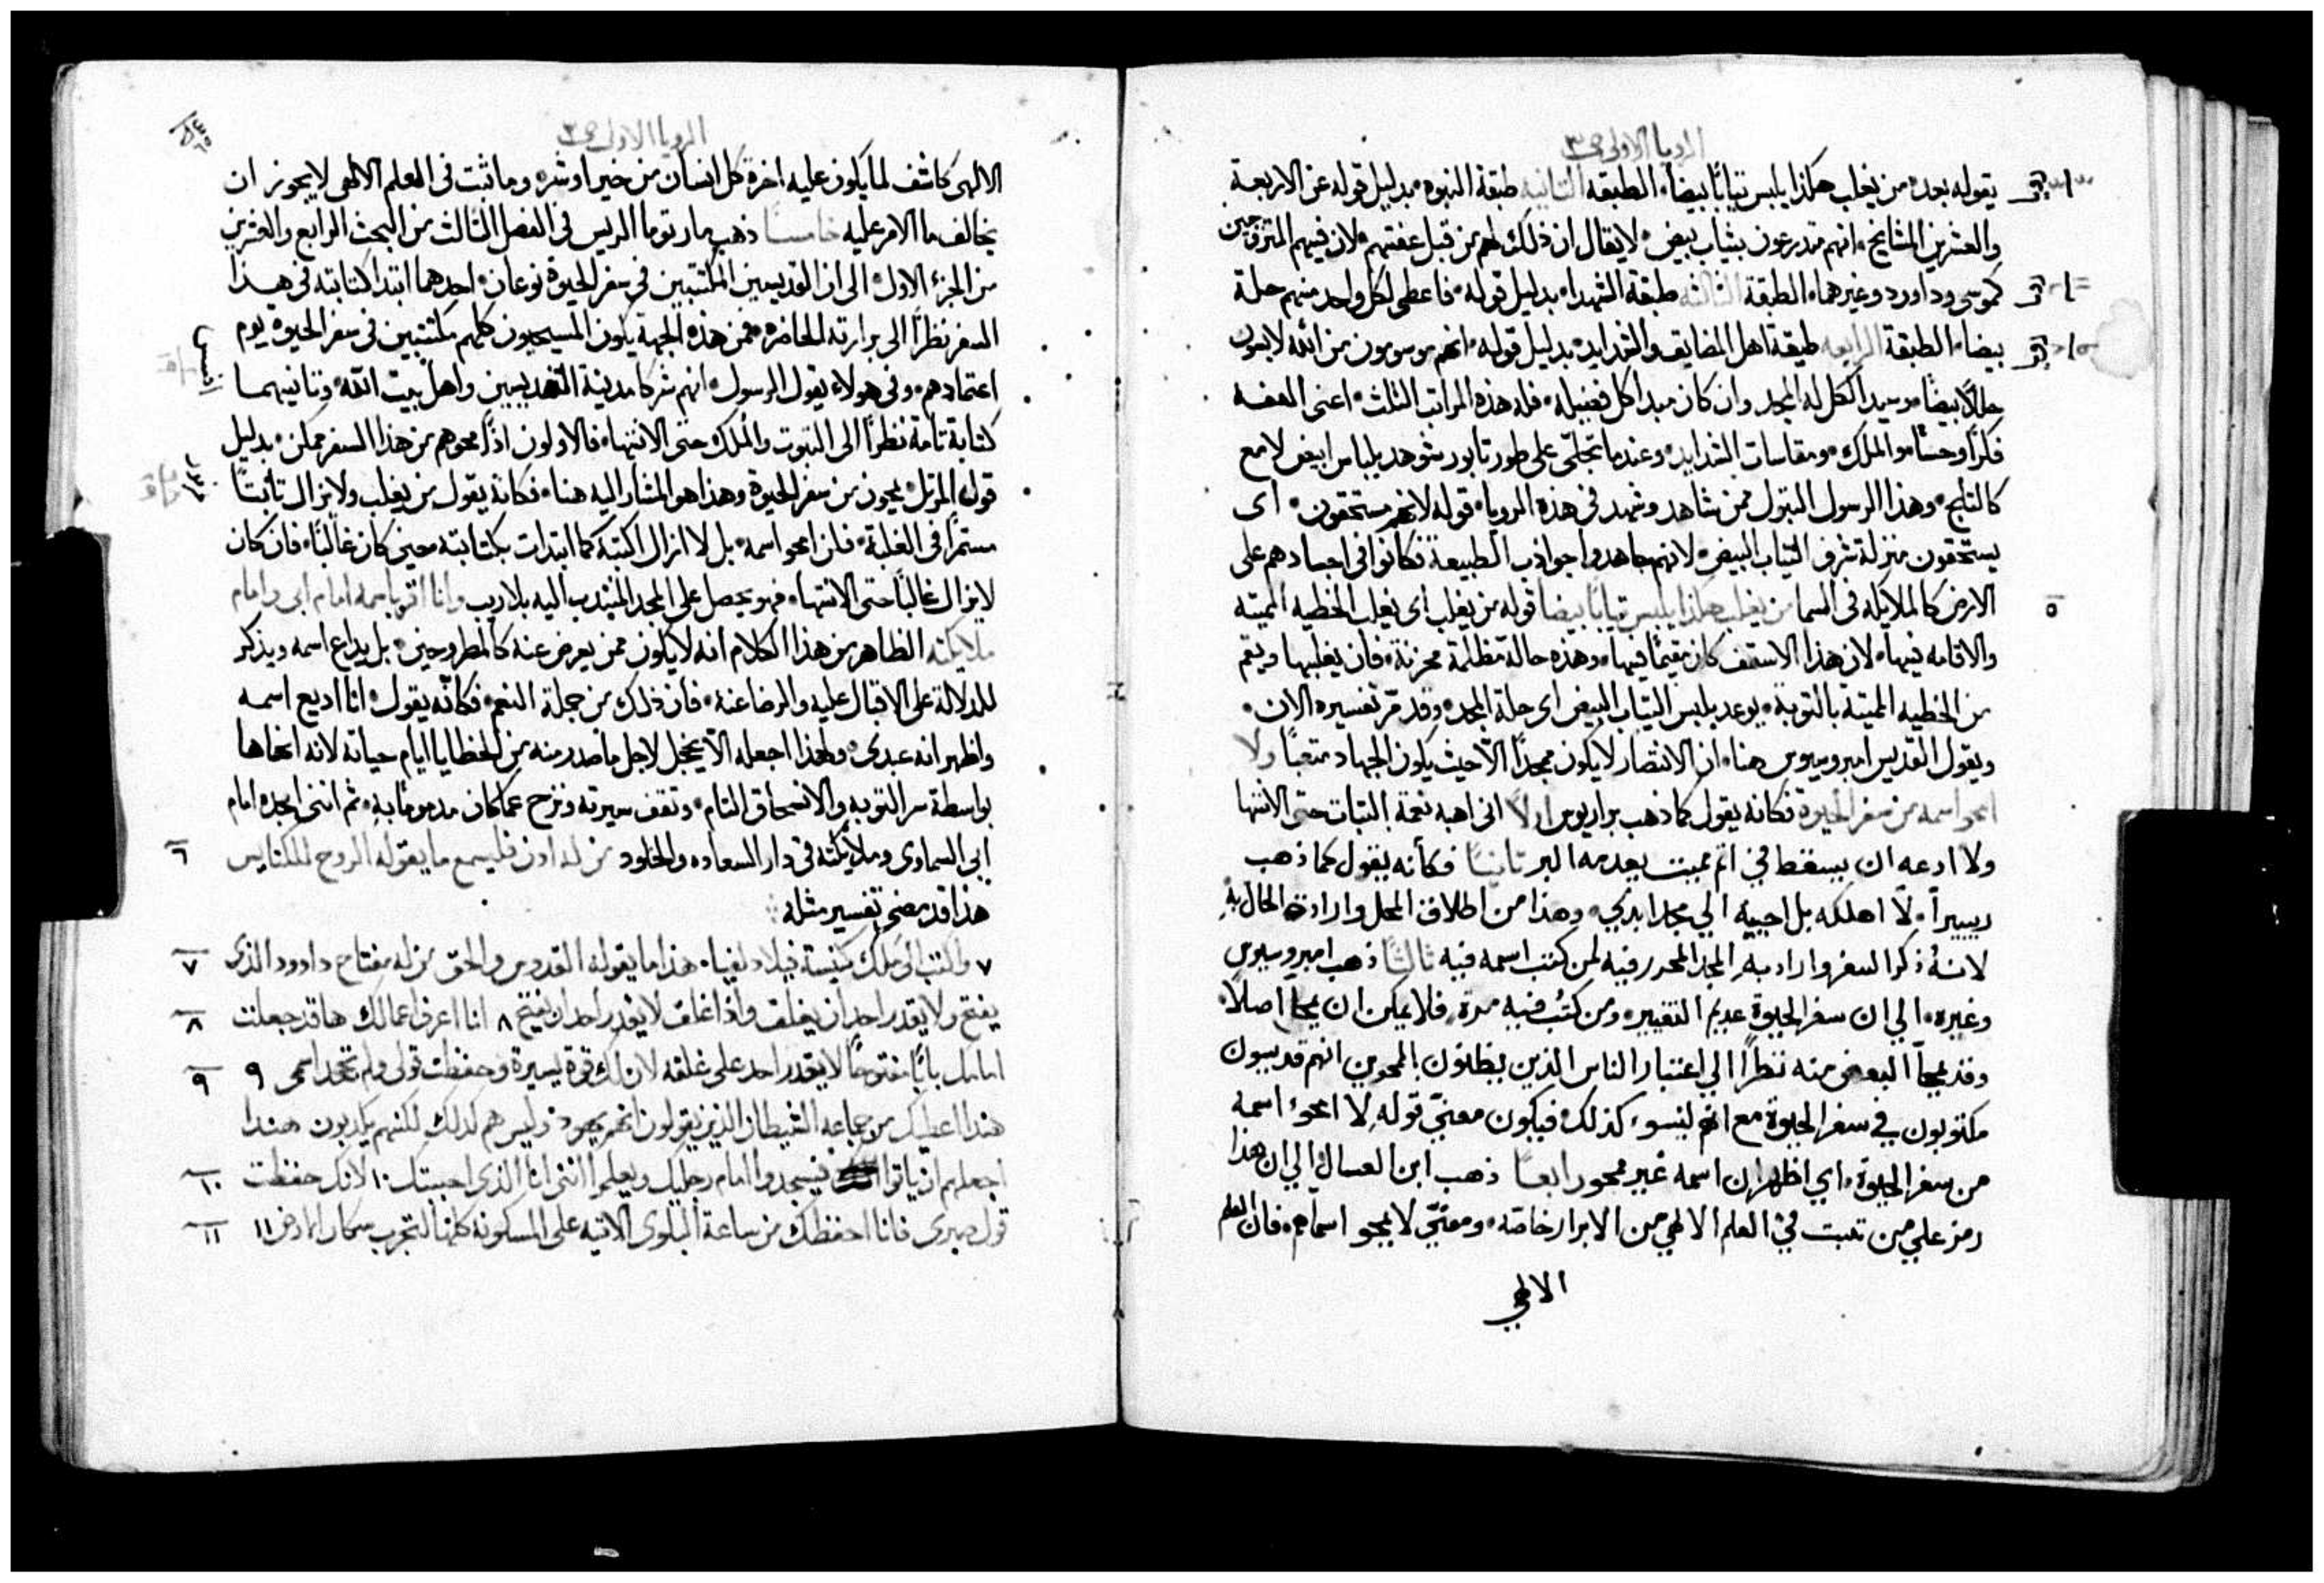 الرويا الاولى ص ٣
يقوله بعده من يغلب هكذا يلبس ثيابًا بيضًا، الطبقه الثانيه طبقة النبوه بدليل قوله عن الاربعة
والعشرين المشايخ، انهم متدرعون بثياب بيض، لا يقال ان ذلك لهم من قبل عفتهم، لان فيهم المتزوجين
كموسى وداورد وغيرهما، الطبقة الثالثه طبقة الشهدا، بدليل قوله، فاعطى لكل واحد منهم حلة
بيضا، الطبقة الرابعه طبقة اهل المضايق والشدايد، بدليل قوله، انهم موسومون من الله لابسون
حللاً بيضًا، وسيد الكل له المجد وان كان مبدا كل فضيله، فله هذه المراتب الثلث، اعنى العفه
فكرًا وحسًا، والملك، ومقاسات الشدايد، وعندما تجلّى على طور تابور شوهد بلباس ابيض لامع
كالثلج، وهذا الرسول البتول ممن شاهد وشهد فى هذه الرويا، قوله لانهم مستحقون، اى
يستحقون منزلة شرف الثياب البيض، لانهم جاهدوا جواذب الطبيعة، فكانوا فى اجسادهم على
الارض كالملايكه فى السما من يغلب هكذا يلبس ثيابًا بيضا قوله من يغلب اى يغلب الخطيه المميته
والاقامه فيها، لان هذا الاسقف كان مقيمًا فيها، وهذه حالة مظلمة محزنة، فان يغلبها ويقم
من الخطيه المميتة بالتوبة، يوعد بلبس الثياب البيض اى حلة المجد، وقد مرّ تفسيره الان،
ويقول القديس امبروسيوس هنا، ان الانتصار لا يكون ممجدًا الّا حيث يكون الجهاد متعبًا ولا
امحو اسمه من سفر الحيوة فكانه يقول كما ذهب براريوس اولًا انى اهبه نعمة الثبات حتى الانتها
ولا ادعه ان يسقط في اثم مميت يعدمه البر ثانيًا فكأنه يقول كما ذهب
ريبيرآ، لا اهلكه بل احييه الي مجد ابدي، وهذا من اطلاق المحل وارادة الحال به
لانهُ ذكر السفر واراد به المجد المحرر فيه لمن كتب اسمه فيه ثالثًا ذهب امبروسيوس
وغيره، الي ان سفر الحيوة عديم التغيير، ومن كُتب فيه مرة، فلا يمكن ان يمحا اصلًا،
وقد يمحا البعض منه نظرًا الي اعتبار الناس الذين يظنون بالممحوين انهم قديسون
مكتوبون في سفر الحيوة مع انهم ليسوء كذلك، فيكون معني قوله لا امحوء اسمه
من سفر الحيوة، اي اظهر ان اسمه غير ممحو رابعًا ذهب ابن العسال الي ان هذا
رمز علي من ثبت في العلم الالهي من الابرار خاصّه، ومعني لا يمحو اسماهم، فان العلم
الالهي
الرويا الاولى ص ٣
الالهى كاشف لما يكون عليه اخرة كل انسان من خير او شر، وما ثبت فى العلم الالهى لا يجوز ان
يخالف ما الامر عليه خامسًا ذهب مار توما الريس فى الفصل الثالث من البحث الرابع والعشرين
من الجزء الاول، الى ان القديسين المكتتبين فى سفر الحيوة نوعان، احدهما ابتدا كتابته فى هذا
السفر نظرًا الى برارته الحاضرة، فمن هذه الجهة يكون المسيحيون كلهم مكتتبين فى سفر الحيوة يوم
اعتمادهم، وفى هولاء يقول الرسول، انهم شركا مدينة القديسين واهل بيت الله، وثانيهما
كتابة تامة نظرًا الى الثبوت والملك حتى الانتها، فالاولون اذًا محوهم من هذا السفر ممكن، بدليل
قول المرتل، يمحون من سفر الحيوة وهذا هو المشار اليه هنا، فكانه يقول من يغلب ولا يزال ثابتًا
مستمرًا فى الغلبة، فلن امحو اسمه، بل لا ازال اكتبه كما ابتدات بكتابته حين كان غالبًا، فان كان
لا يزال غالبًا حتى الانتها، فهو يحصل على المجد المنتدب اليه بلا ريب وانا اقر باسمه امام ابى وامام
ملايكته الظاهر من هذا الكلام انه لا يكون ممن يعرض عنه كالمطروحين، بل يذاع اسمه ويذكر
للدلالة على الاقبال عليه والرضا عنه، فان ذلك من جملة النعم، فكانه يقول، انا اذيع اسمه
واظهر انه عبدى، ولهذا اجعله الّا يخجل لاجل ما صدر منه من الخطايا ايام حياته لانه امحاها
بواسطة سر التوبه والانسحاق التام، وثقف سيرته ونزح عما كان مذمومًا به، ثم اننى امجده امام
ابى السماوى وملايكته فى دار السعاده والخلود من له اذن فليسمع ما يقوله الروح للكنايس ٦
هذا قد مضى تفسير مثله
٧ واكتب الى ملك كنيسة فيلادلفيا، هذا ما يقوله القدوس والحق من له مفتاح داوود الذى ٧
يفتح ولا يقدر احد ان يغلق واذا غلق لا يقدر احد ان يفتح ٨ انا اعرف اعمالك ها قد جعلت ٨
امامك بابًا مفتوحًا لا يقدر احد على غلقه لان لك قوة يسيرة وحفظت قولى ولم تجحد اسمى ٩ ٩
هنذا اعطيك من جماعة الشيطان الذين يقولون انهم يهود وليس هم كذلك لكنهم يكذبون هنذا
اجعلهم ان ياتوا فيسجدوا امام رجليك ويعلموا اننى انا الذى احببتك ١٠ لانك حفظت ١٠
قول صبرى فانا احفظك من ساعة البلوى الاتيه على المسكونه كلها لتجرب سكان الارض ١١ ١١